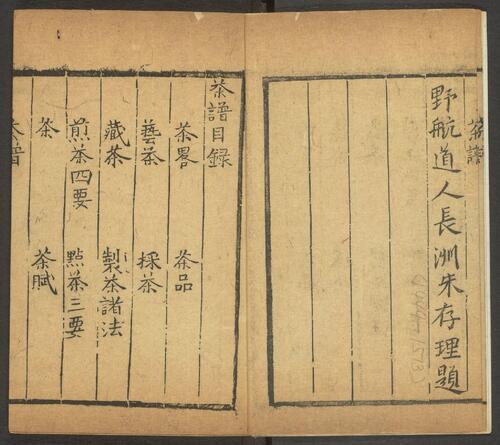 茶譜
野航道人長洲朱存理題
茶譜目録
茶畧 茶品
藝茶 採茶
藏茶 製茶諸法
煎茶四要 點茶三要
茶 茶賦
茶譜